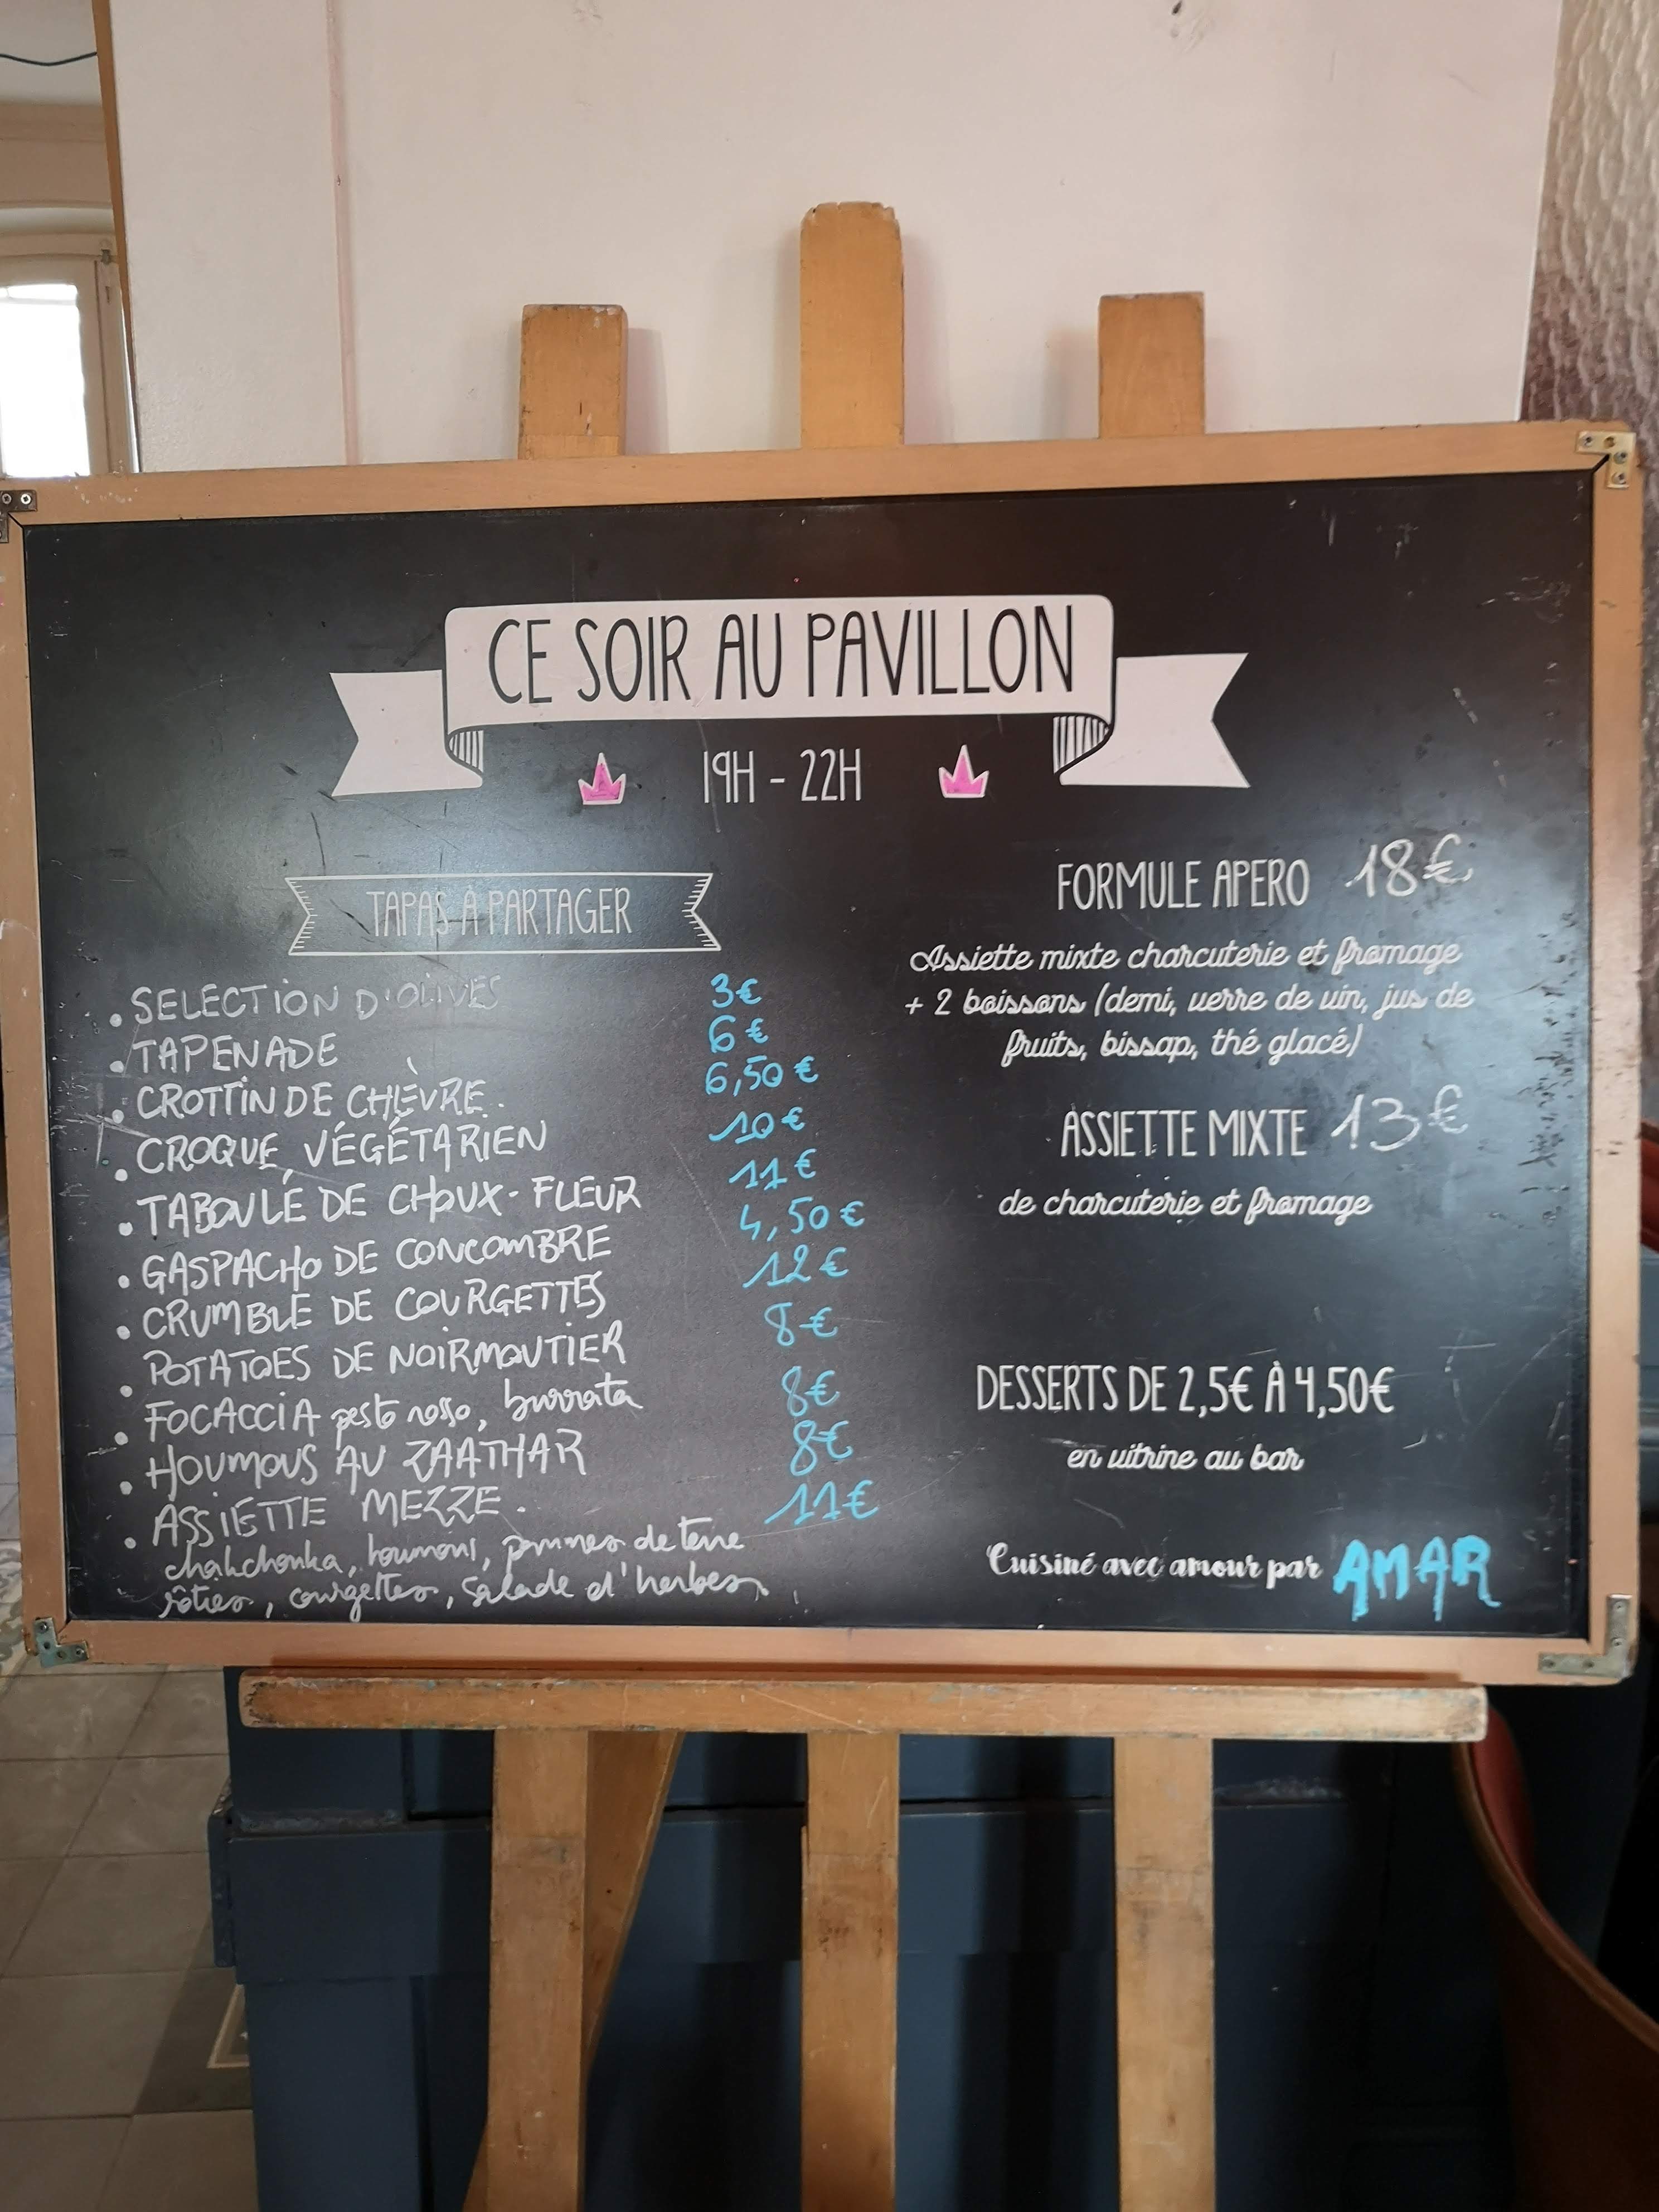 CE SOIR AU PAVILLON
19H - 22H
TAPAS À PARTAGER
• SELECTION D'OLIVES 3€
• TAPENADE 6€
• CROTTIN DE CHÈVRE. 6,50€
• CROQUE VÉGÉTARIEN 10€
• TABOULÉ DE CHOUX-FLEUR 11€
• GASPACHO DE CONCOMBRE 4,50€
• CRUMBLE DE COURGETTES 12€
• POTATOES DE NOIRMOUTIER 8€
• FOCACCIA pesto rosso, burrata 8€
• HOUMOUS AU ZAATHAR 8€
• ASSIETTE MEZZE. 11€
chakchouka, houmous, pommes de terre
rôties, courgettes, salade d'herbes
FORMULE APERO 18€
Assiette mixte charcuterie et fromage
+ 2 boissons (demi, verre de vin, jus de
fruits, bissap, thé glacé)
ASSIETTE MIXTE 13€
de charcuterie et fromage
DESSERTS DE 2,5€ À 4,50€
en vitrine au bar
Cuisiné avec amour par AMAR